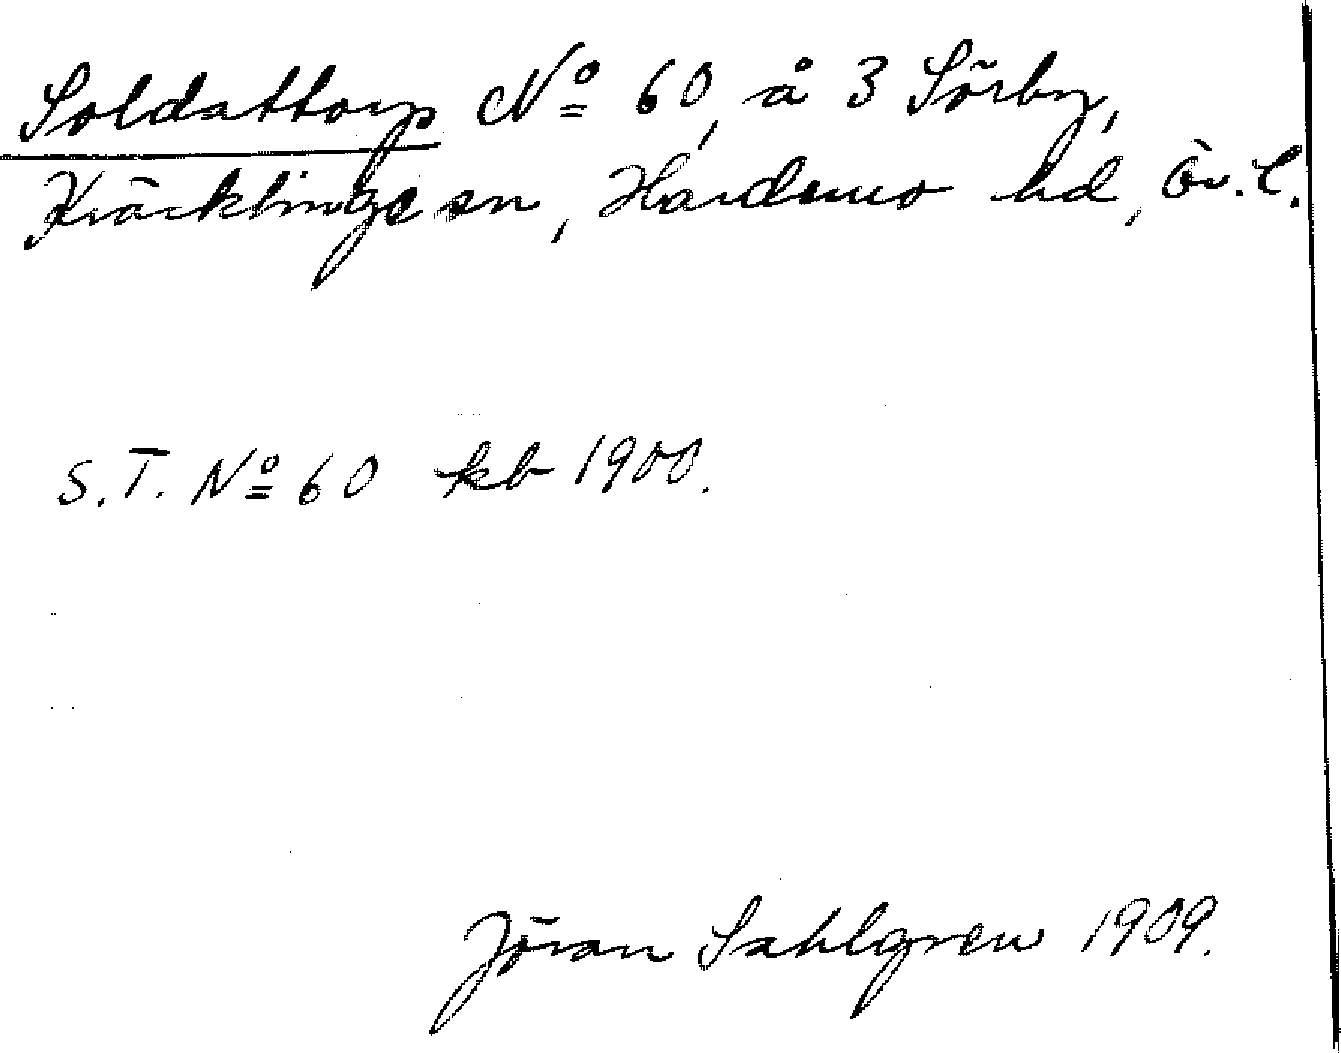 Soldattorp Nº 60, å 3 Sörby,
Kräcklinge sn, Hardemo hd, Ör. l.
S.T. Nº 60 kb 1900.
Jöran Sahlgren 1909.